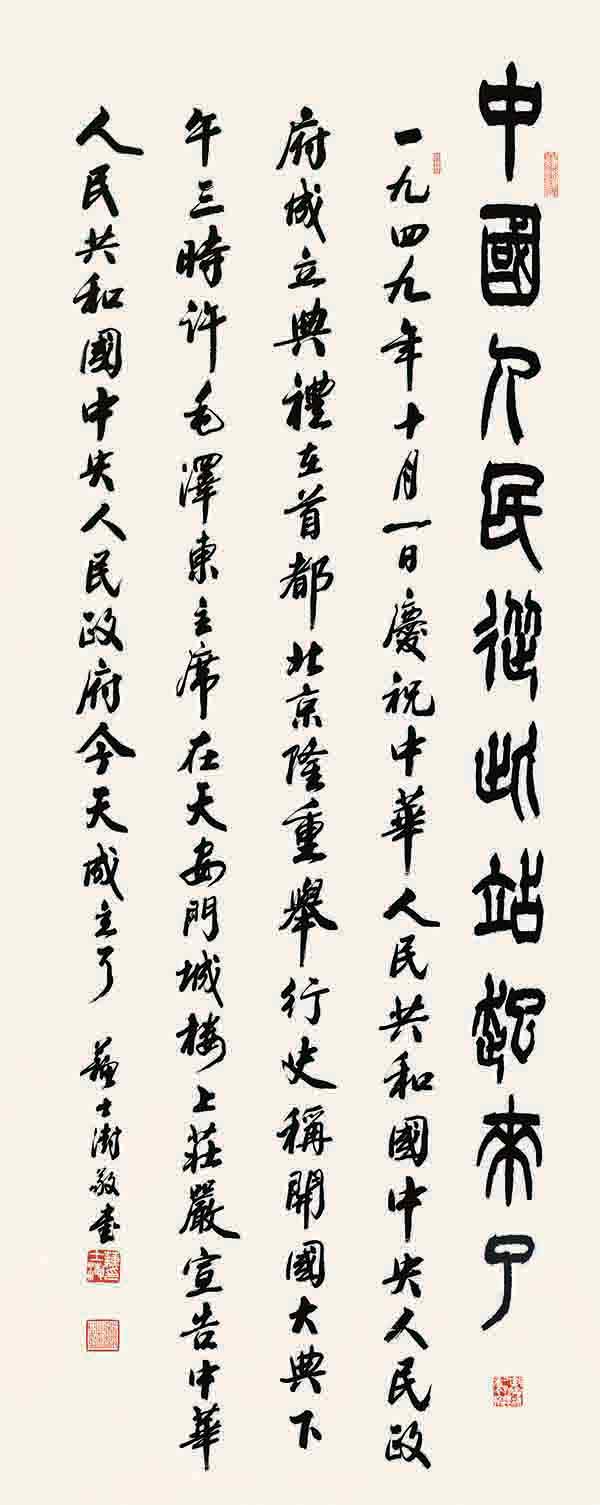 中國人民從此站起來了
一九四九年十月一日慶祝中華人民共和國中央人民政
府成立典禮在首都北京隆重舉行史稱開國大典下
午三時許毛澤東主席在天安門城樓上莊嚴宣告中華
人民共和國中央人民政府今天成立了 蘇士澍敬書